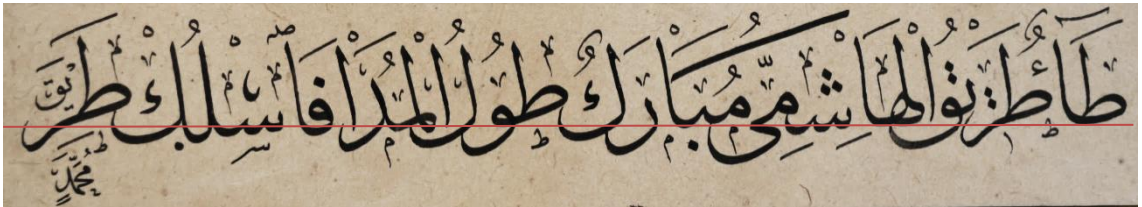 طآء طريق الهاشمي مبارك طول المدا فاسلك طريق
محمد